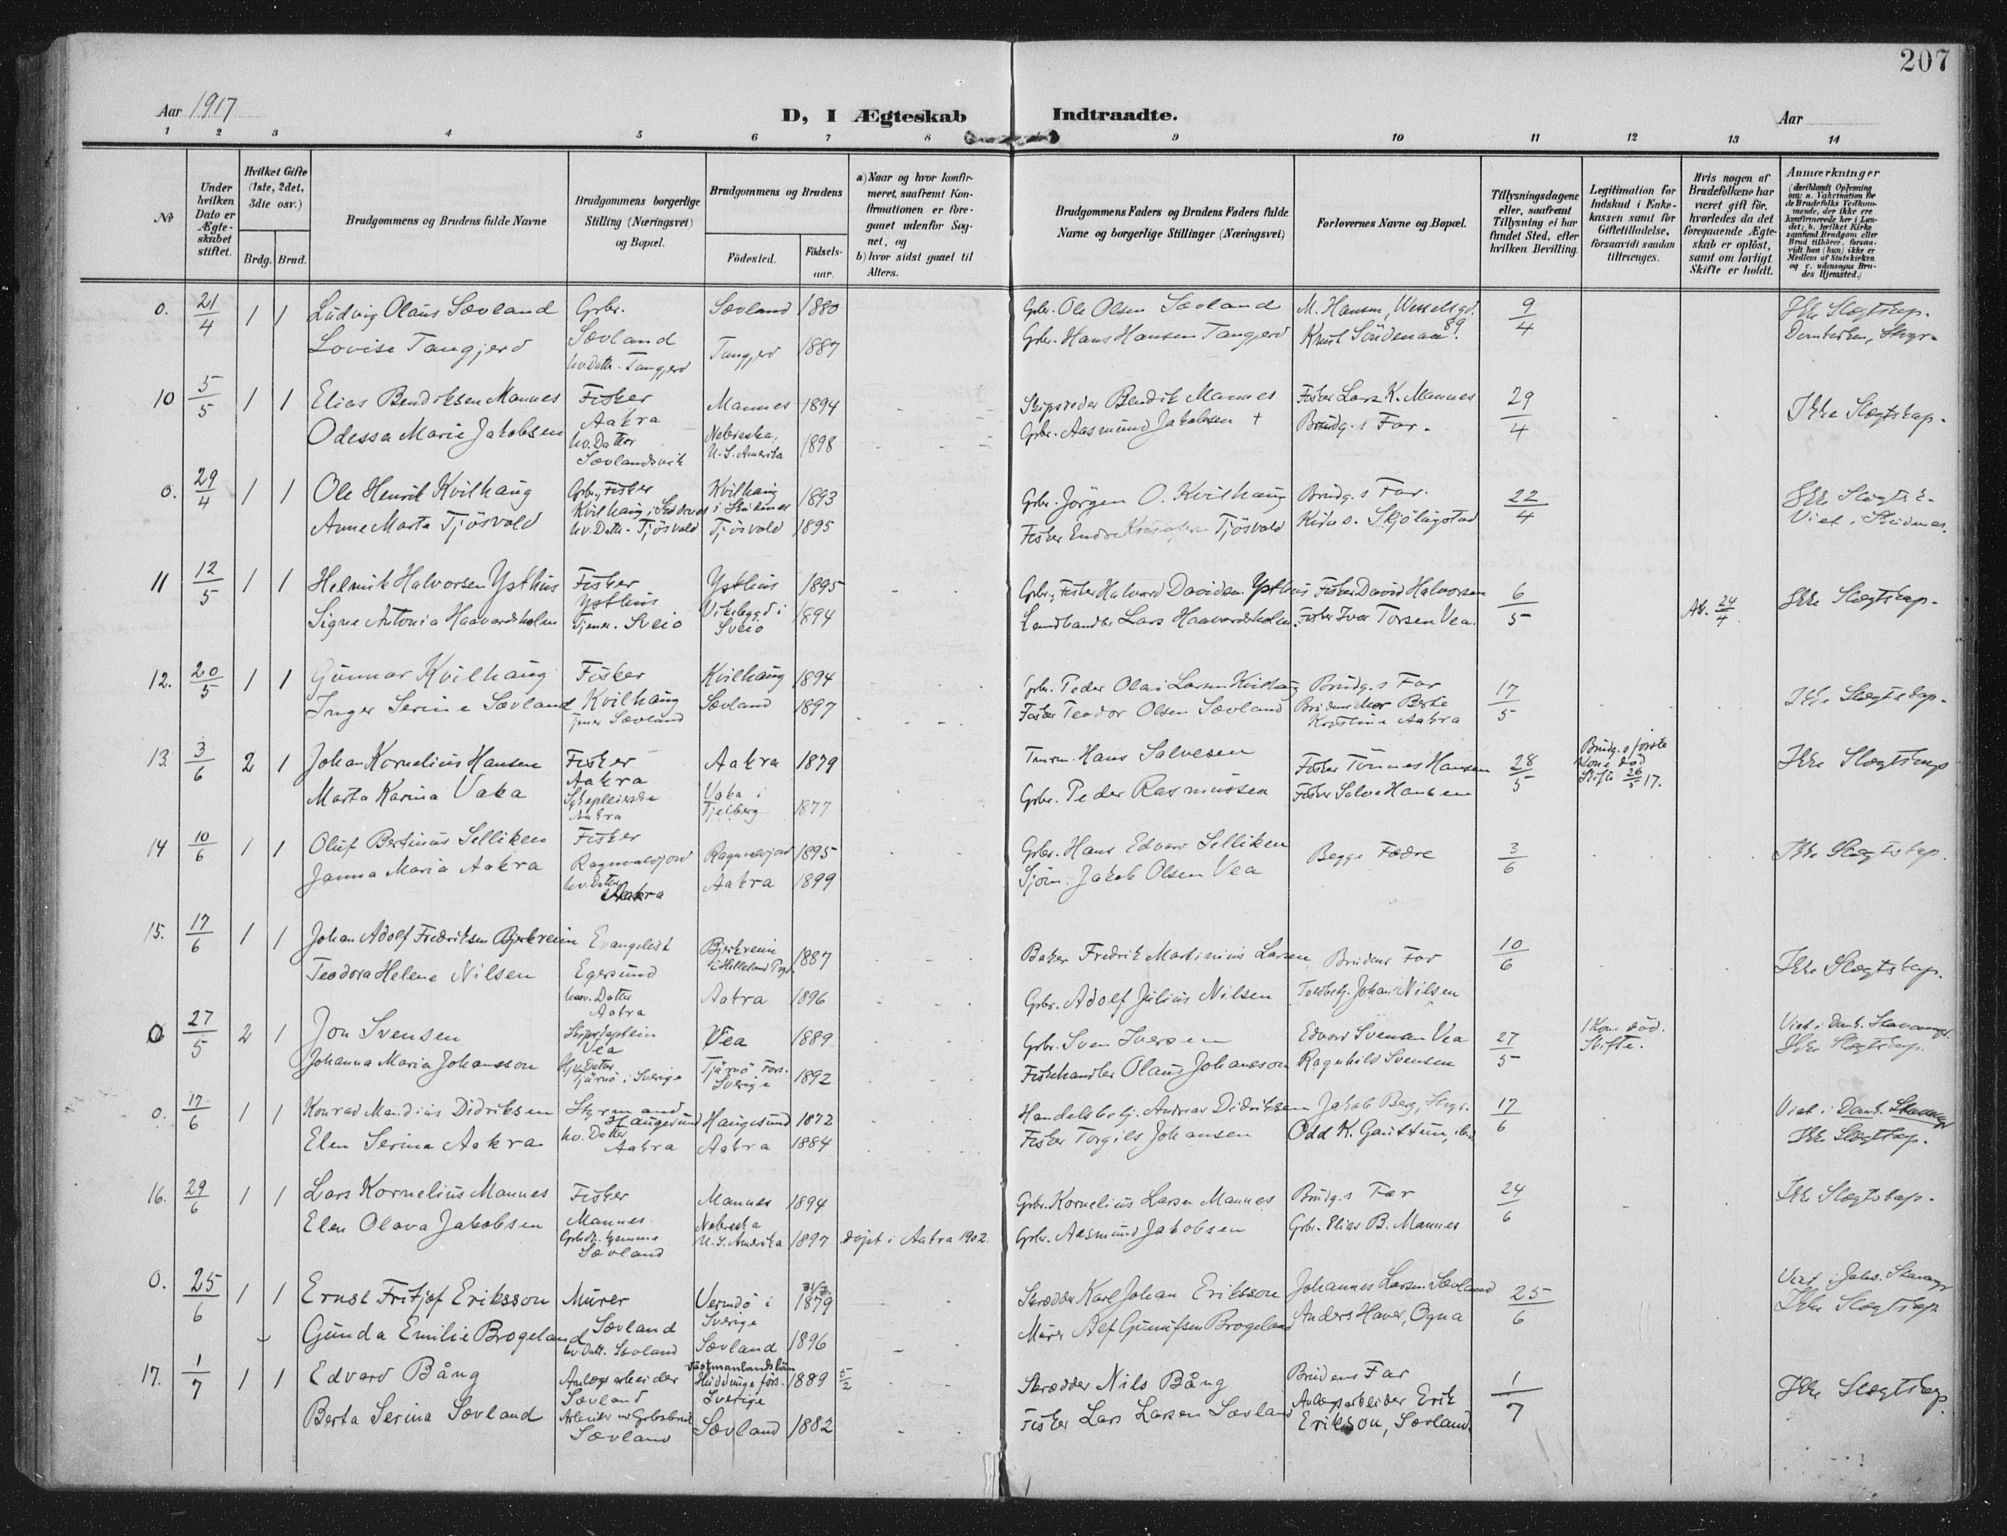 207
Aar 1917
D, I Ægteskab Indtraadte.
Aar
1 2 3 4 5 6 7 8 9 10 11 12 13 14
No
Under hvilken Dato er Ægteskabet stiftet.
Hvilket Gifte (1ste, 2det, 3die osv.)
Brdg. Brud.
Brudgommens og Brudens fulde Navne
Brudgommens borgerlige Stilling (Næringsvei) og Bopæl.
Brudgommens og Brudens
Födested. Födsels-aar.
a) Naar og hvor konfirmeret, saafremt Konfirmationen er foregaaet udenfor Sognet, og
b) hvor sidst gaaet til Alters.
Brudgommens Faders og Brudens Faders fulde Navne og borgerlige Stillinger (Næringsvei)
Forlovernes Navne og Bopæl.
Tillysningsdagene eller, saafremt Tillysning ei har fundet Sted, efter hvilken Bevilling.
Legitimation for Indskud i Enkekassen samt for Giftetilladelse, forsaavidt saadan tiltrænges.
Hvis nogen af Brudefolkene har været gift för, hvorledes da det foregaaende Ægteskab er oplöst, samt om lovligt Skifte er holdt.
Anmærkninger
0. 21/4 1 1 Ludvig Olaus Sævland Gbr. Sævland Sævland 1880 Gbr. Ole Olsen Sævland M. Hansen, Wesselsgt. 89 9/4 Ikke Slegtskap.
Lovise Tangjerd hv. Datter. Tangjerd Tangjerd 1887 Gbr. Hans Hansen Tangjerd Domkirken, Stvgr.
10 5/5 1 1 Elias Bendiksen Mannes Fisker Aakra Mannes 1894 Skipsreder Bendik Mannes Fisker Lars K. Mannes 29/4 Ikke Slegtskap.
Odessa Marie Jakobsen hv. Datter Sævlandsvik Nebraska, U.S. Amerika 1898 Gbr. Aasmund Jakobsen + Brudg.s Far.
0. 29/4 1 1 Ole Henrik Kvilhaug Gbr., Fisker Kvilhaug i Skudenes Kvilhaug i Skudenes 1893 Gbr. Jörgen O. Kvilhaug Brudg.s Far. 22/4 Ikke Slegtsk.
Anne Marta Tjösvold hv. Datter. Tjösvold Tjösvold 1895 Fisker Endre Tjösvold Viet i Skudenes.
11 12/5 1 1 Helmik Halvorsen Ysthus Fisker Ysthus Ysthus 1895 Gbr., Fisker Halvard Davidsen Ysthus Fisker David Halvorsen 6/5 At. 24/4 Ikke Slegtskap.
Signe Antonia Haavardsholm Tjener. Sveio Vikebygd i Sveio 1894 Landhandler Lars Haavardsholm. Fisker Ivar Torsen Vea.
12. 20/5 1 1 Gunnar Kvilhaug Fisker Kvilhaug Kvilhaug 1894 Gbr. Peder Olai Larsen Kvilhaug Brudg.s Far 17/5 Ikke Slegtskap.
Inger Serine Sævland Tjener Sævland Sævland 1897 Fisker Teodor Olsen Sævland Brudens Mor Berte Kristine Aakra
13. 3/6 2 1 Johan Kornelius Hansen Fisker Aakra Aakra 1879 Tmrm. Hans Salvesen Fisker Tönnes Hansen 28/5 Brudg.s förste Kone död Skifte 26/5 17. Ikke Slegtskap
Marta Karina Vaka Sykepleierske Aakra Vaka i Fjelberg 1877 Gbr. Peder Rasmussen Fisker Salve Hansen
14 10/6 1 1 Oluf Bertinius Selliken Fisker Ragnvalsjord Ragnvalsjord 1895 Gbr. Hans Edvard Selliken Begges Fædre 3/6 Ikke Slegtskap.
Janna Maria Aakra hv. Datter Aakra Aakra 1899 Sjöm. Jakob Olsen Vea
15. 17/6 1 1 Johan Adolf Fredriksen Bjerkreim Evangelist Egersund Bjerkreim i Helleland Pgd. 1887 Baker Fredrik Martinius Larsen Brudens Far 10/6 Ikke Slegtskap.
Teodora Helene Nilsen husv. Datter Aakra Aakra 1896 Gbr. Adolf Julius Nilsen Toldbetj. Johan Nilsen
0 27/5 2 1 Jon Svensen Skipskaptein Vea Vea 1889 Gbr. Sven Iversen Edvard Svensen Vea 27/5 1 Kon. död. Skifte. Viet i Domk. Stavanger
Johanna Maria Johansson Hjv. Datter Tjärnö i Sverige Tjärnö Fors. Sverige 1892 Fiskehandler Olaus Johansson Ragnhild Svensen Ikke Slegtskap.
0. 17/6 1 1 Konrad Mandius Didriksen Styrmand Haugesund Haugesund 1872 Handelsbetj. Andreas Didriksen Jakob Berg, Stvgr. 17/6 Viet i Domk. Stavanger
Elen Serina Aakra hv. Datter Aakra Aakra 1884 Fisker Torgils Johansen Odd K. Gauttun, ibid Ikke Slegtskap.
16. 29/6 1 1 Lars Kornelius Mannes Fisker Mannes. Mannes 1894 Gbr. Kornelius Larsen Mannes Brudg.s Far 24/6 Ikke Slegtskap.
Elen Olava Jakobsen Sævland Nebraska U.S. Amerika 1897 döpt i Aakra 1902. Gbr. Aasmund Jakobsen Gbr. Elias B. Mannes
0. 25/6 1 1 Ernst Fritjof Eriksson Murer Sævland Vermdö i Sverige 1879 Skrædder Karl Johan Eriksson Johannes Larsen Sævland 25/6 Viet i Joh. Stavanger
Gunda Emilie Brogeland hv. Datt. Sævland Sævland 1896 Murer Alf Gunufsen Brogeland Anders Haver, Ogna Ikke Slegtskap
17. 1/7 1 1 Edvard Bång Anlægsarbeider Sævland Västmanlandslän Huddunge förs. Sverige 1889 5/2 Skrædder Nils Bång Brudens Far 1/7 Ikke Slegtskap.
Berta Serina Sævland Sævland Sævland 1882 Fisker Lars Larsen Sævland Anlægsarbeider Erik Erikson, Sævland.